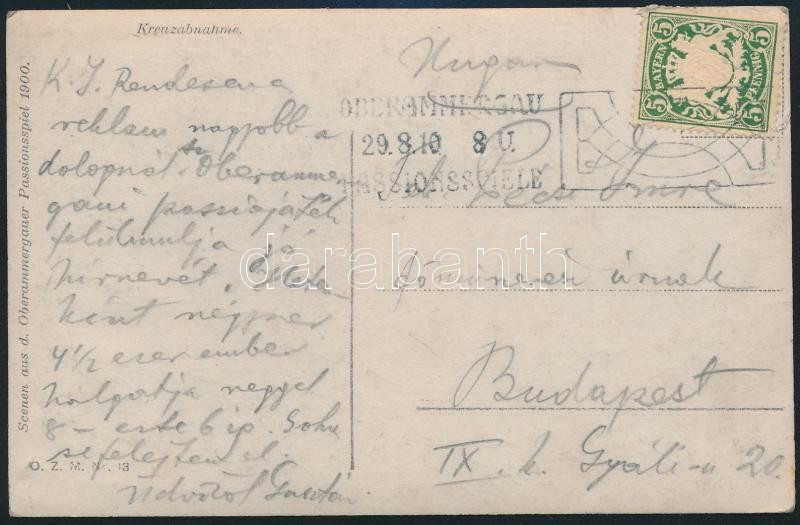 Kreuzabnahme.
Scenen aus d. Oberammergauer Passionsspiel 1900.
K. I. Rendesen a
reklám nagyobb a
dolognál. Az Oberamme
gaui passiojáték
felülmulja jó
hírnevét.
ként négyszer
4 1/2 ezer ember
hallgatja reggel
8 – este 6 ig. Soha
se felejtem el.
Üdvözöl Gusztáv
O. Z. M. Nr. 13
Ungarn
OBERAMMERGAU
29.8.10 8 U.
PASSIONSSPIELE
5 5
BAYERN
PFENNIG
5 5
Pécsi Imre
főmérnök úrnak
Budapest
IX. k. Gyáli-u 20.
darabanth